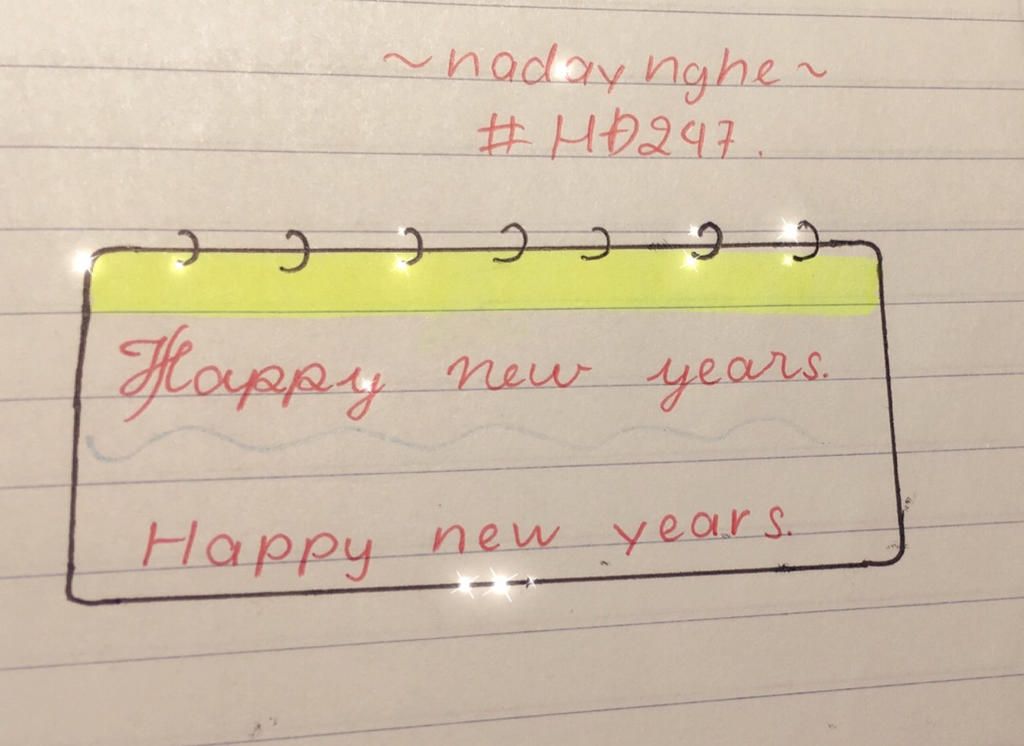 ~nadaynghe~
#HĐ247.
Happy new years.
Happy new years.